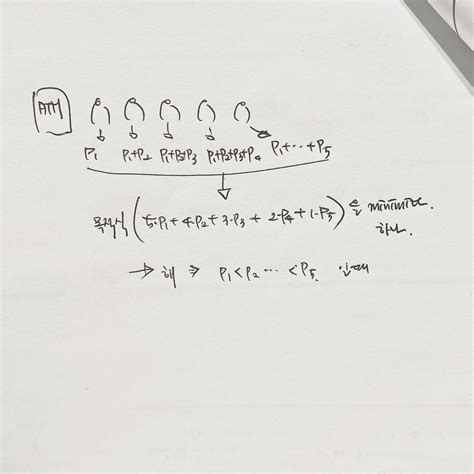 ATM
P₁ P₁+P₂ P₁+P₂+P₃ P₁+P₂+P₃+P₄ P₁+⋯+P₅
목적식 (5·P₁+4·P₂+3·P₃+2·P₄+1·P₅) 을 minimize
하나.
→ 해 ⇒ P₁<P₂⋯<P₅. 일때